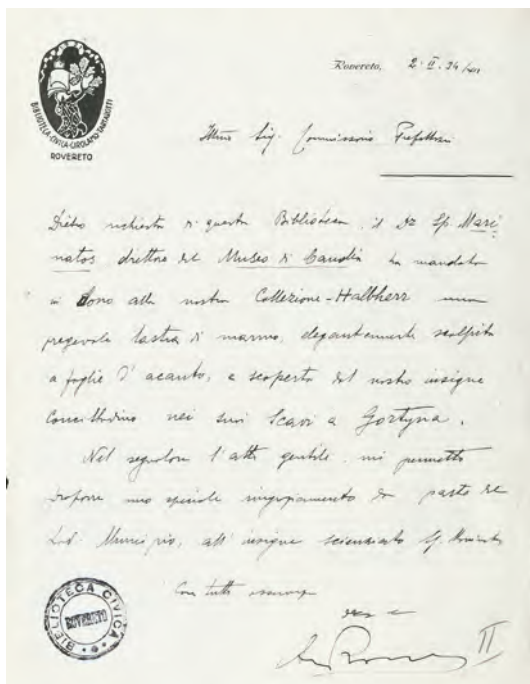 BIBLIOTECA·CIVICA·GIROLAMO·TARTAROTTI
ROVERETO
Rovereto, 2·II·34/XII
Illmo Sig. Commissario Prefettizio
Dietro richiesta di questa Biblioteca, il Dr Sp. Mari
natos direttore del Museo di Candia ha mandato
in dono alla nostra Collezione-Halbherr una
pregevole lastra di marmo, elegantemente scolpita
a foglie d'acanto, e scoperta dal nostro insigne
Concittadino nei suoi Scavi a Gortyna.
Nel segnalare l'atto gentile, mi permetto
proporre uno speciale ringraziamento da parte del
Lod. Municipio, all'insigne scienziato Sp. Marinatos
Con tutta osservanza
II
BIBLIOTECA CIVICA
ROVERETO